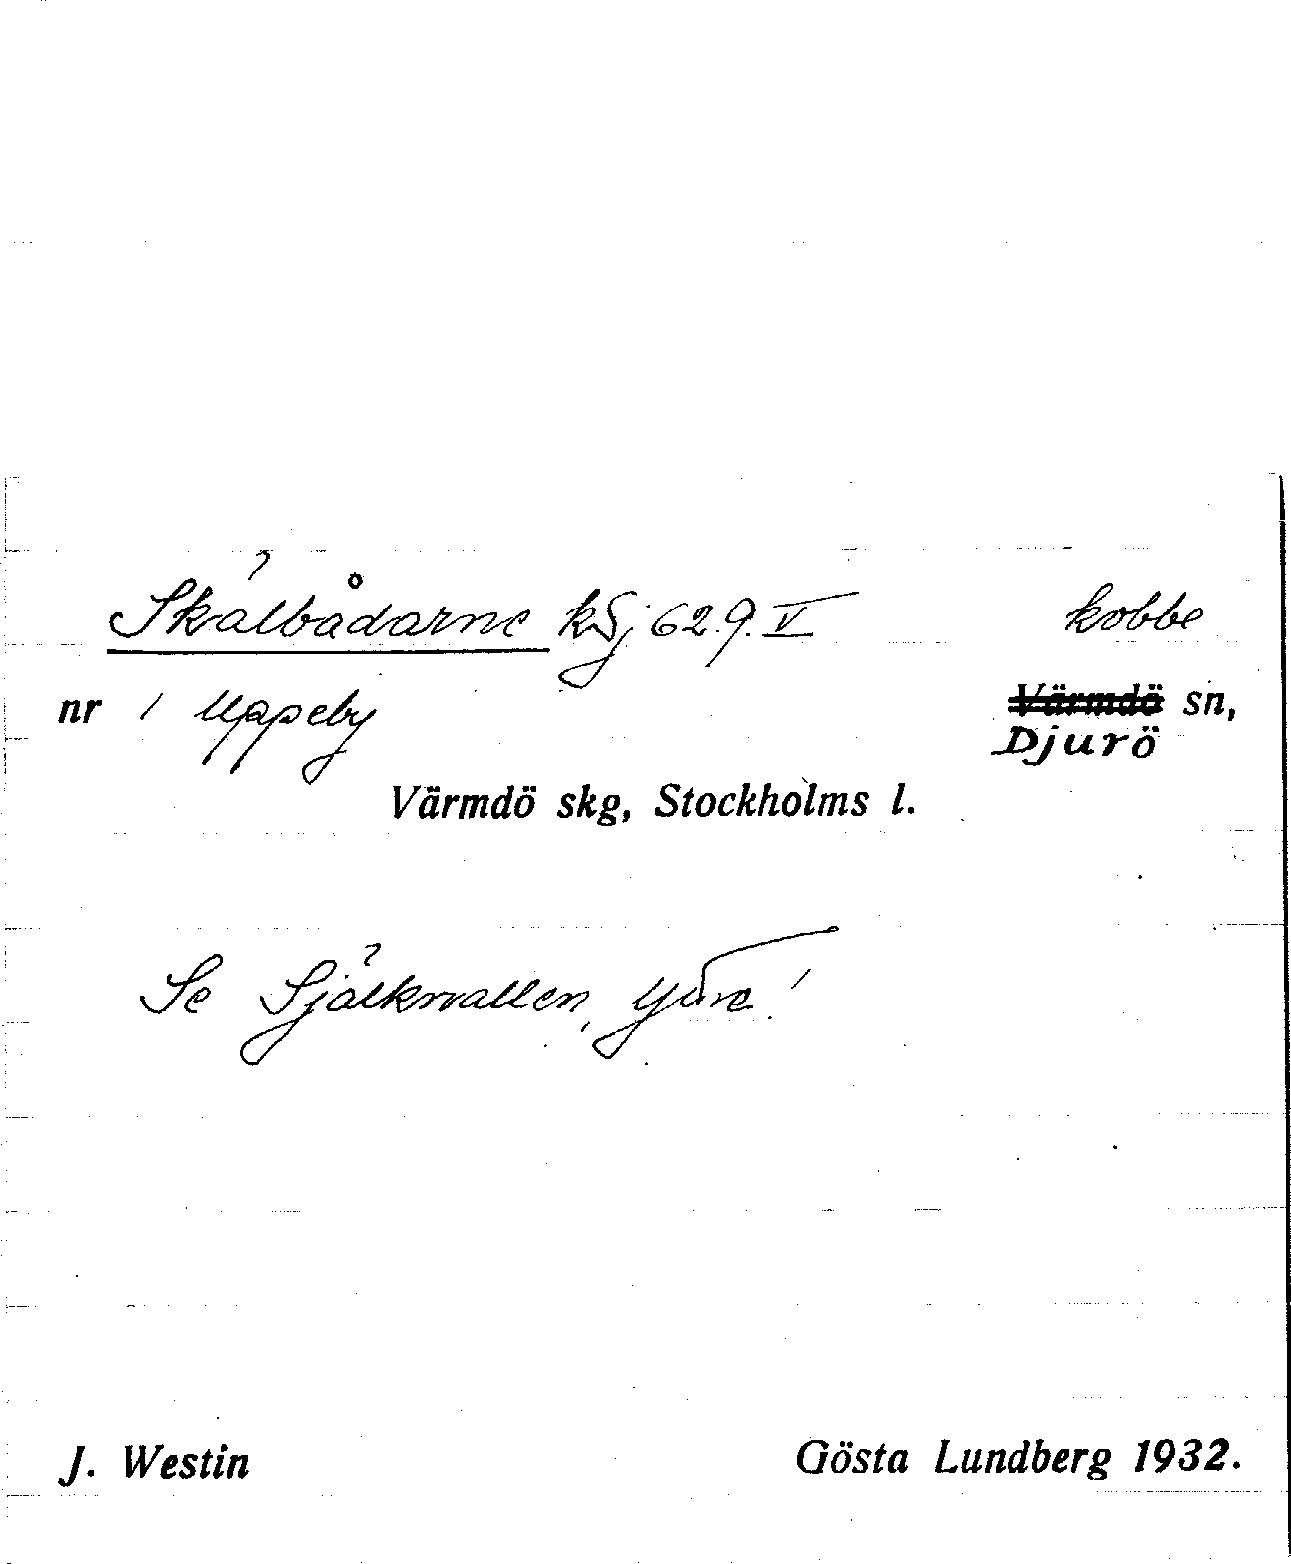 Skålbådarne kSj 629.V kobbe
nr 1 Uppeby Värmdö sn,
Djurö
Värmdö skg, Stockholms l.
Se Själknallen,
J. Westin Gösta Lundberg 1932.